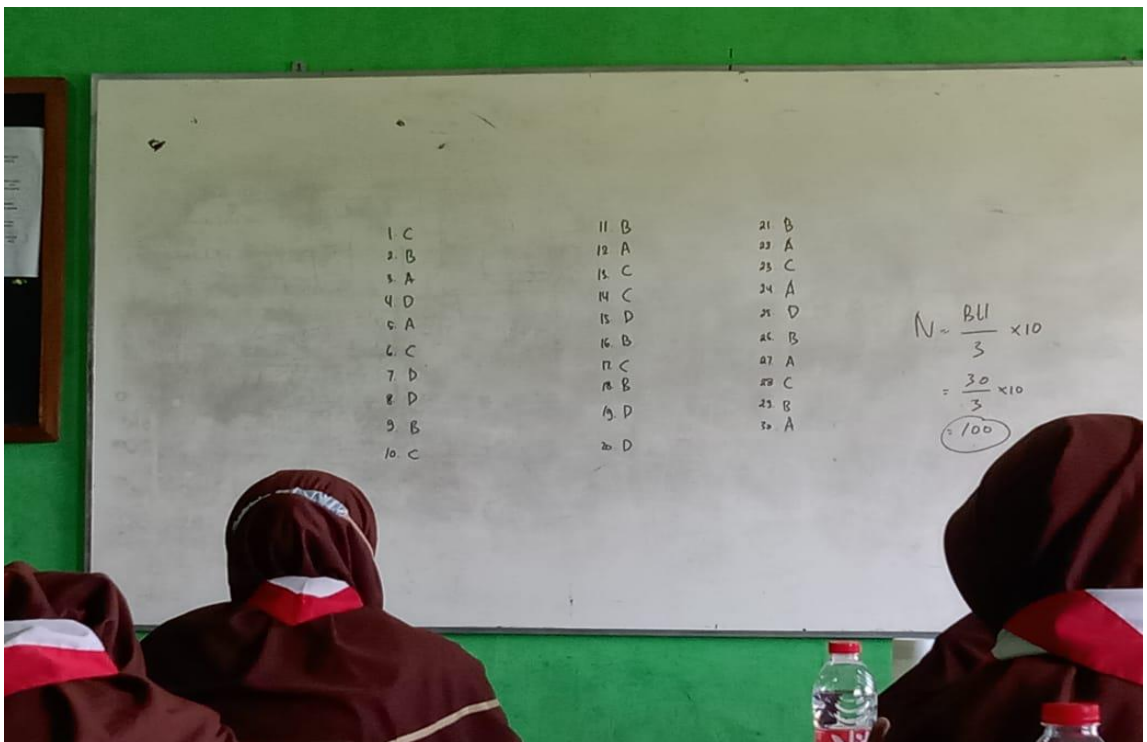 1. C
2. B
3. A
4. D
5. A
6. C
7. D
8. D
9. B
10. C
11. B
12. A
13. C
14. C
15. D
16. B
17. C
18. B
19. D
20. D
21. B
22. A
23. C
24. A
25. D
26. B
27. A
28. C
29. B
30. A
N = BU/3 ×10
= 30/3 ×10
= 100